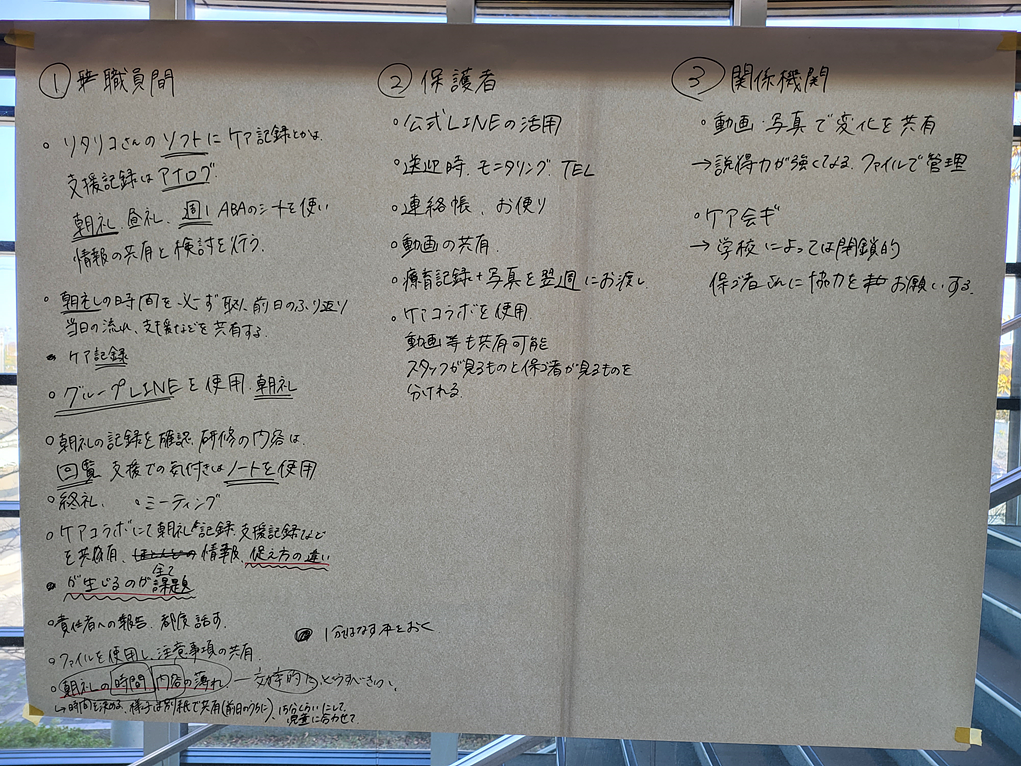 ① 職員間
。リタリコさんのソフトにケア記録とかは、
支援記録はアナログ。
朝礼、昼礼、週1 ABAのシートを使い
情報の共有と検討を行う。
。朝礼の時間を必ず取り、前日のふり返り
当日の流れ、支援などを共有する。
・ケア記録
。グループLINEを使用、朝礼
。朝礼の記録を確認、研修の内容は、
回覧 支援での気付きはノートを使用
。終礼、 。ミーティング
。ケアコラボにて朝礼記録、支援記録など
を共有、情報、捉え方の違い
全て
が生じるのが課題
。責任者への報告、都度話す。
1分はなす本をおく
。ファイルを使用し、注意事項の共有。
。朝礼の時間 内容の薄れ、
どうすべきか、
↳時間を決める、様子は別紙で共有(前日のうちに)、15分くらいにして、
児童に合わせて
② 保護者
。公式LINEの活用
。送迎時、モニタリング、TEL
。連絡帳、お便り
。動画の共有、
。療育記録+写真を翌週にお渡し
。ケアコラボを使用
動画等も共有可能
スタッフが見るものと保ゴ者が見るものを
分けれる
③ 関係機関
。動画・写真で変化を共有
→説得力が強くなる、ファイルで管理
。ケア会ギ
→学校によっては閉鎖的
保ゴ者さんに協力をお願いする。